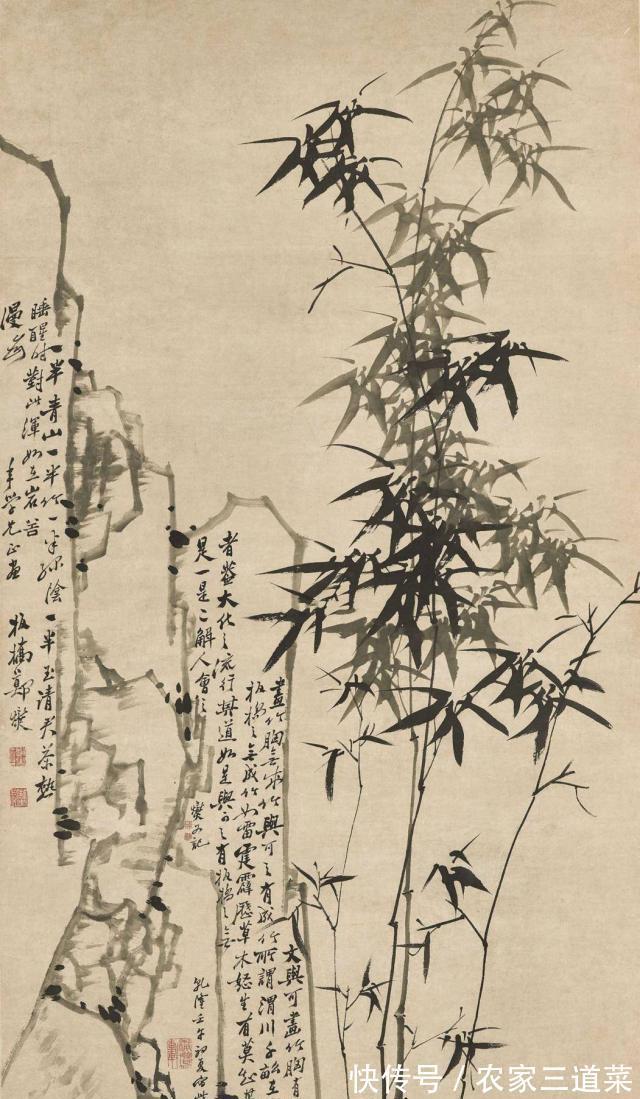 一半青山一半竹一半綠陰一半玉請君茶熟
睡醒時對此渾如在岩
漫
年學兄正畫
板橋鄭燮
文與可畫竹胸有
畫竹胸無成竹與可之有成竹所謂渭川千畝在
板橋之無成竹如雷霆霹靂草木怒生有莫知其
者蓋大化之流行其道如是與可之有板橋之無
是一是二解人會之
燮又記
乾隆壬午初夏
快传号/农家三道菜